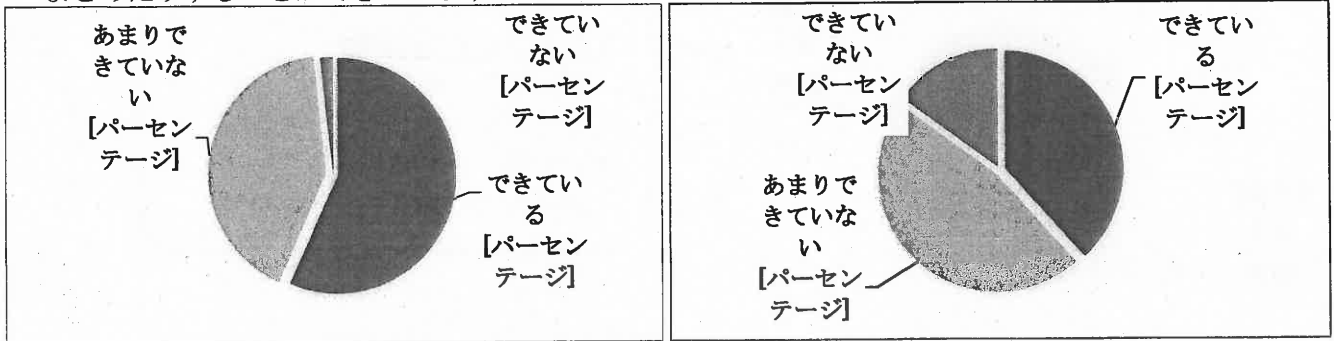 あまりで
きていな
い
[パーセン
テージ]
できてい
ない
[パーセン
テージ]
できてい
る
[パーセン
テージ]
できてい
ない
[パーセン
テージ]
できてい
る
[パーセン
テージ]
あまりで
きていな
い
[パーセン
テージ]